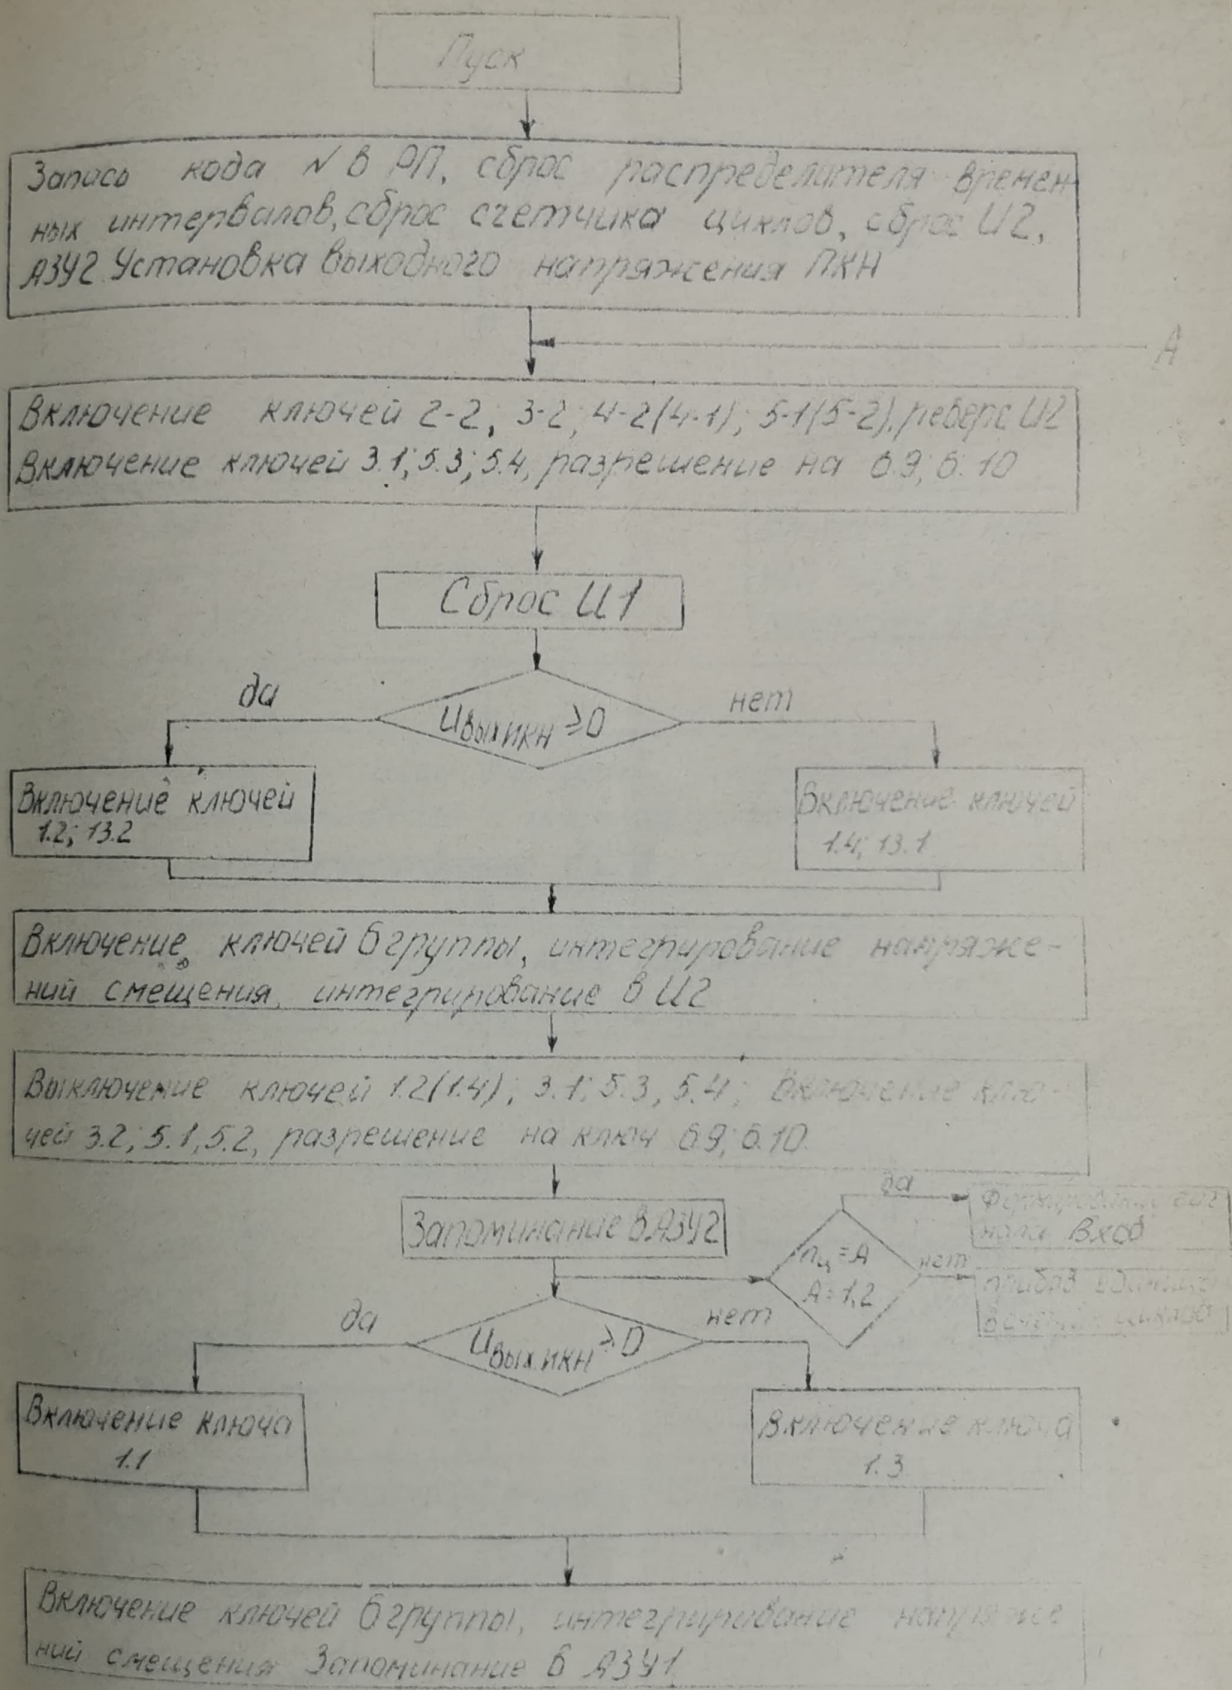 Пуск
Запись кода N в РП, сброс распределителя времен-
ных интервалов, сброс счетчика циклов, сброс И2,
АЗУ2 Установка выходного напряжения ПКН
А
Включение ключей 2-2; 3-2; 4-2(4-1); 5-1(5-2), реверс И2
Включение ключей 3.1; 5.3; 5.4, разрешение на 6.9; 6.10
Сброс И1
да
нет
Uвых икн ≥0
Включение ключей
1.2; 13.2
Включение ключей
1.4; 13.1
Включение ключей 6 группы, интегрирование напряже-
ний смещения, интегрирование в И2
Выключение ключей 1.2(1.4); 3.1; 5.3, 5.4, Включение клю-
чей 3.2; 5.1, 5.2, разрешение на ключ 6.9; 6.10.
Запоминание в АЗУ2
да
Формирование сиг
нала Вход
nц=А
А=1,2
нет
прибав единицы
циклов
да
нет
Uвых.икн ≥0
Включение ключа
1.1
Включение ключа
1.3
Включение ключей 6 группы, интегрирование напряже
ний смещения Запоминание в АЗУ1